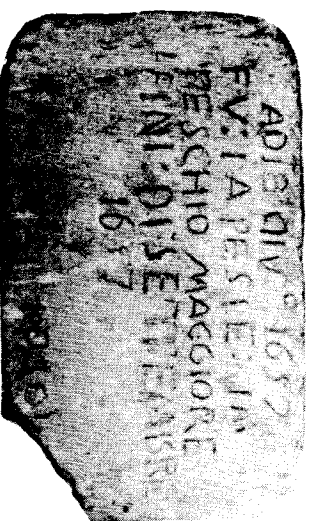 ADI 8 GIVº 1657
FV: LA PESTE: IN
PESCHIO MAGGIORE
FINI: DI SETTEMBRE
1657